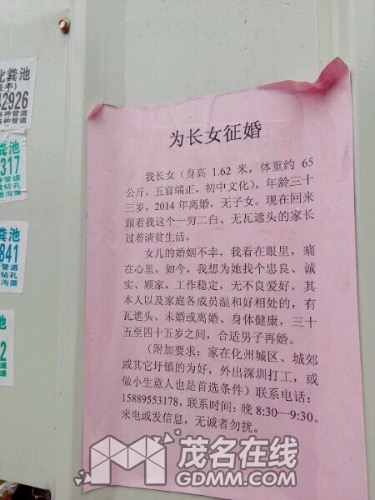 化粪池
42926
各种管道
粪池
317
管道
钻孔
粪池
841
管道
钻孔
沟渠
2
管道
为长女征婚
我长女（身高 1.62 米，体重约 65
公斤，五官端正，初中文化），年龄三十
三岁，2014 年离婚，无子女。现在回来
跟着我这个一穷二白、无瓦遮头的家长
过着清贫生活。
女儿的婚姻不幸，我看在眼里，痛
在心里。如今，我想为她找个忠良、诚
实、顾家，工作稳定，无不良爱好，其
本人以及家庭各成员温和好相处的，有
瓦遮头、未婚或离婚、身体健康，三十
五至四十五岁之间，合适男子再婚。
（附加要求：家在化州城区、城郊
或其它圩镇的为好，外出深圳打工，或
做小生意人也是首选条件）联系电话：
15889553178，联系时间：晚 8:30—9:30。
来电或发信息，无诚者勿扰。
茂名在线
GDMM.COM